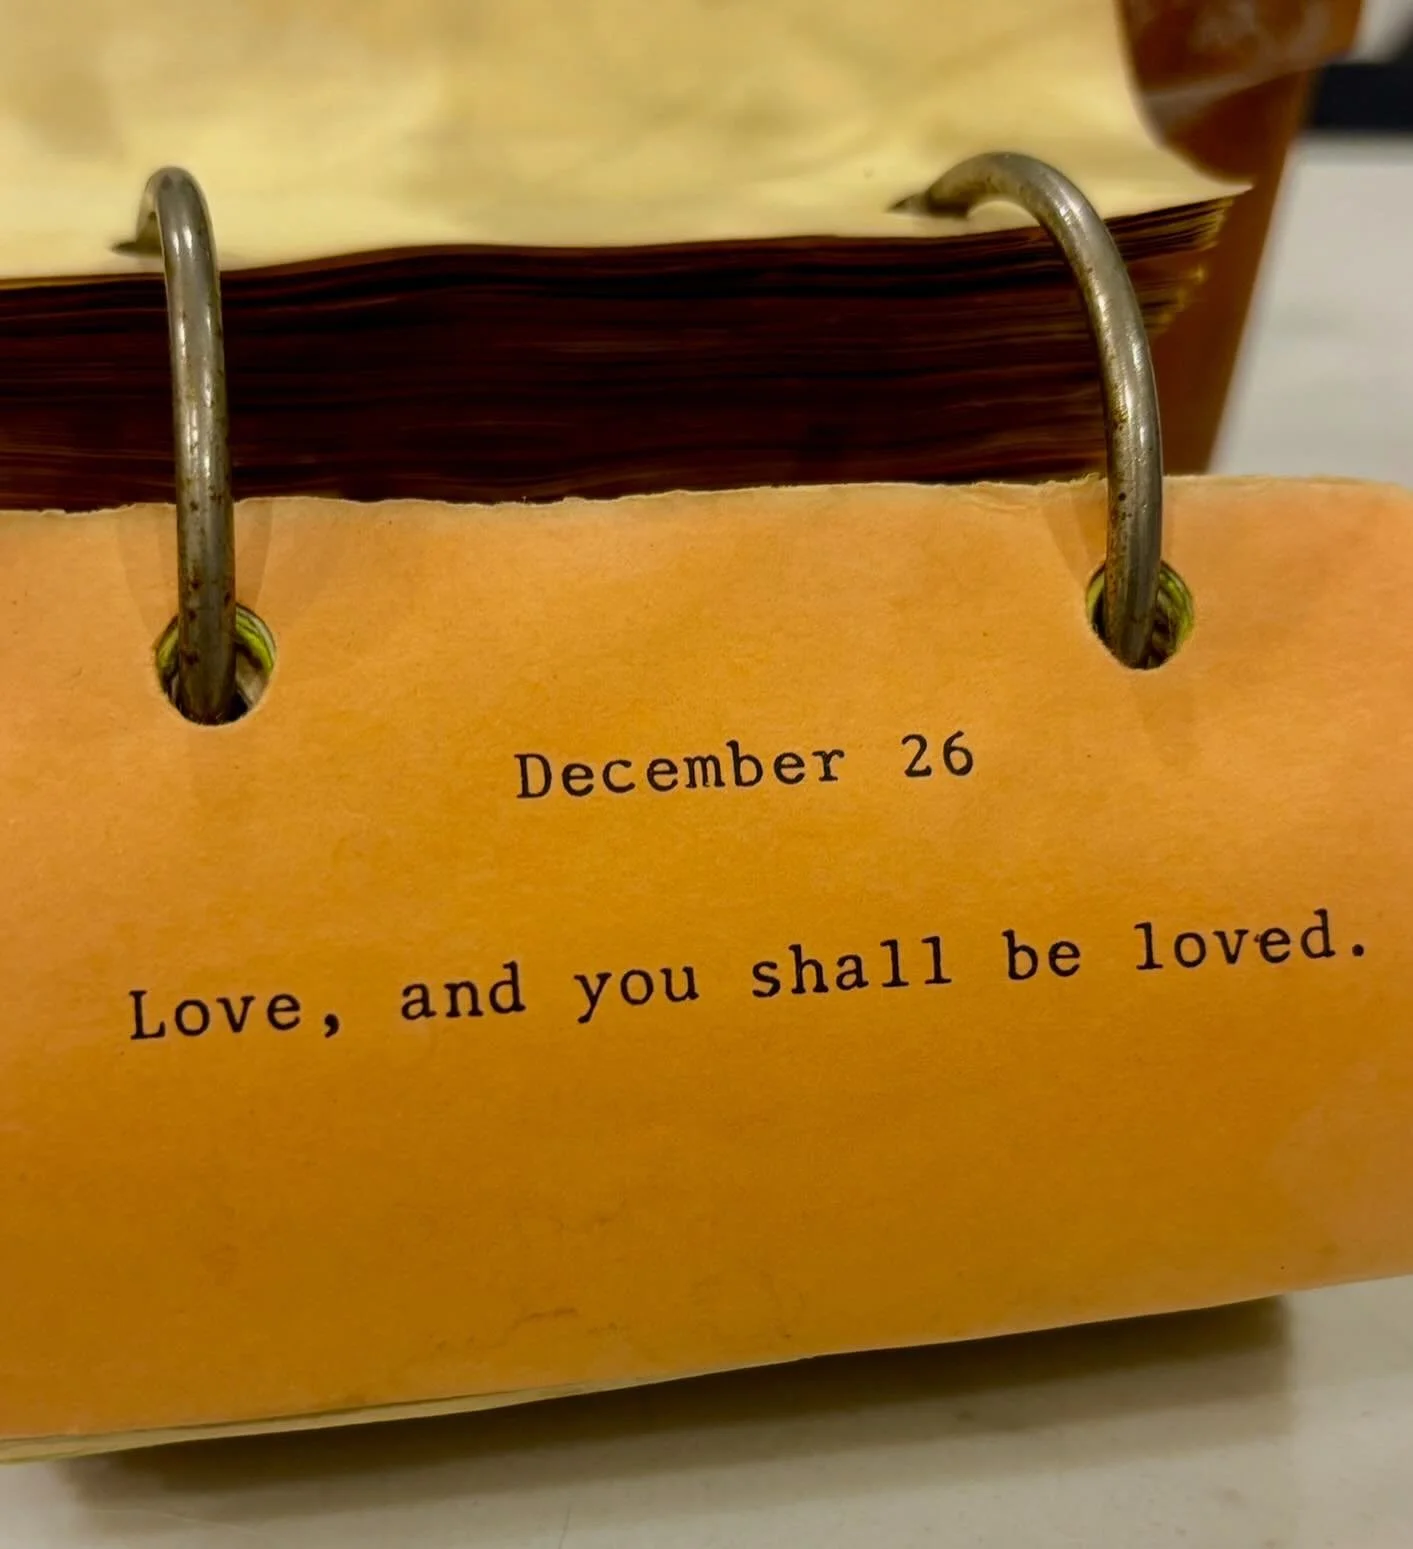 December 26
Love, and you shall be loved.